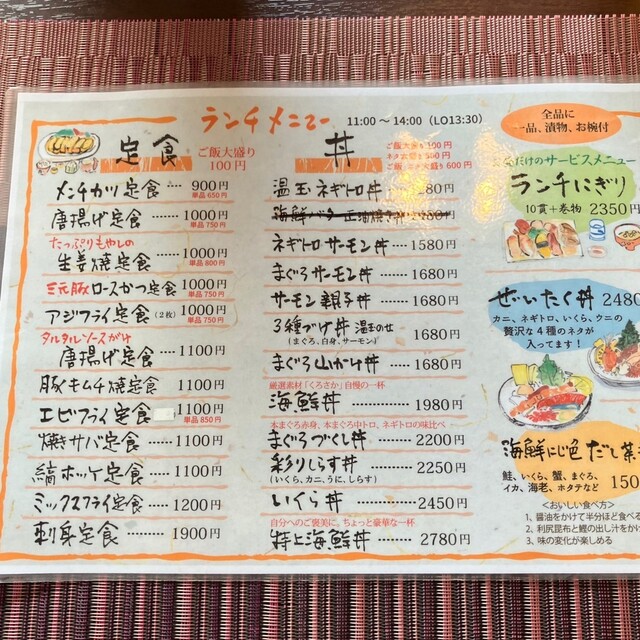 ランチメニュー
11:00～14:00(LO13:30)
全品に
一品、漬物、お椀付
定食
ご飯大盛り
100円
メンチカツ定食 900円
単品650円
唐揚げ定食 1000円
単品750円
たっぷりもやしの
生姜焼定食 1000円
単品800円
三元豚ロースかつ定食 1000円
単品750円
アジフライ定食(2枚) 1000円
単品750円
タルタルソースがけ
唐揚げ定食 1100円
豚キムチ焼定食 1100円
エビフライ定食 1100円
単品850円
焼きサバ定食 1100円
縞ホッケ定食 1100円
ミックスフライ定食 1200円
刺身定食 1900円
丼
ご飯大盛 100円
ネタ大盛 500円
ご飯・ネタ大盛 600円
温玉ネギトロ丼 80円
ネギトロサーモン丼 1580円
まぐろサーモン丼 1680円
サーモン親子丼 1680円
3種づけ丼 温玉のせ 1680円
(まぐろ、白身、サーモン)
まぐろ山かけ丼 1680円
厳選素材「くろさか」自慢の一杯
海鮮丼 1980円
本まぐろ赤身、本まぐろ中トロ、ネギトロの味比べ
まぐろづくし丼 2200円
彩りしらす丼 2250円
(いくら、カニ、うに、しらす)
いくら丼 2450円
自分へのご褒美に、ちょっと豪華な一杯
特上海鮮丼 2780円
だけのサービスメニュー
ランチにぎり
10貫+巻物 2350円
ぜいたく丼 2480
カニ、ネギトロ、いくら、ウニの
贅沢な4種のネタが
入ってます!
海鮮にじ色だし茶
鮭、いくら、蟹、まぐろ、
イカ、海老、ホタテなど 150
<おいしい食べ方>
1、醤油をかけて半分ほど食べる
2、利尻昆布と鰹の出し汁をかけ
3、味の変化が楽しめる